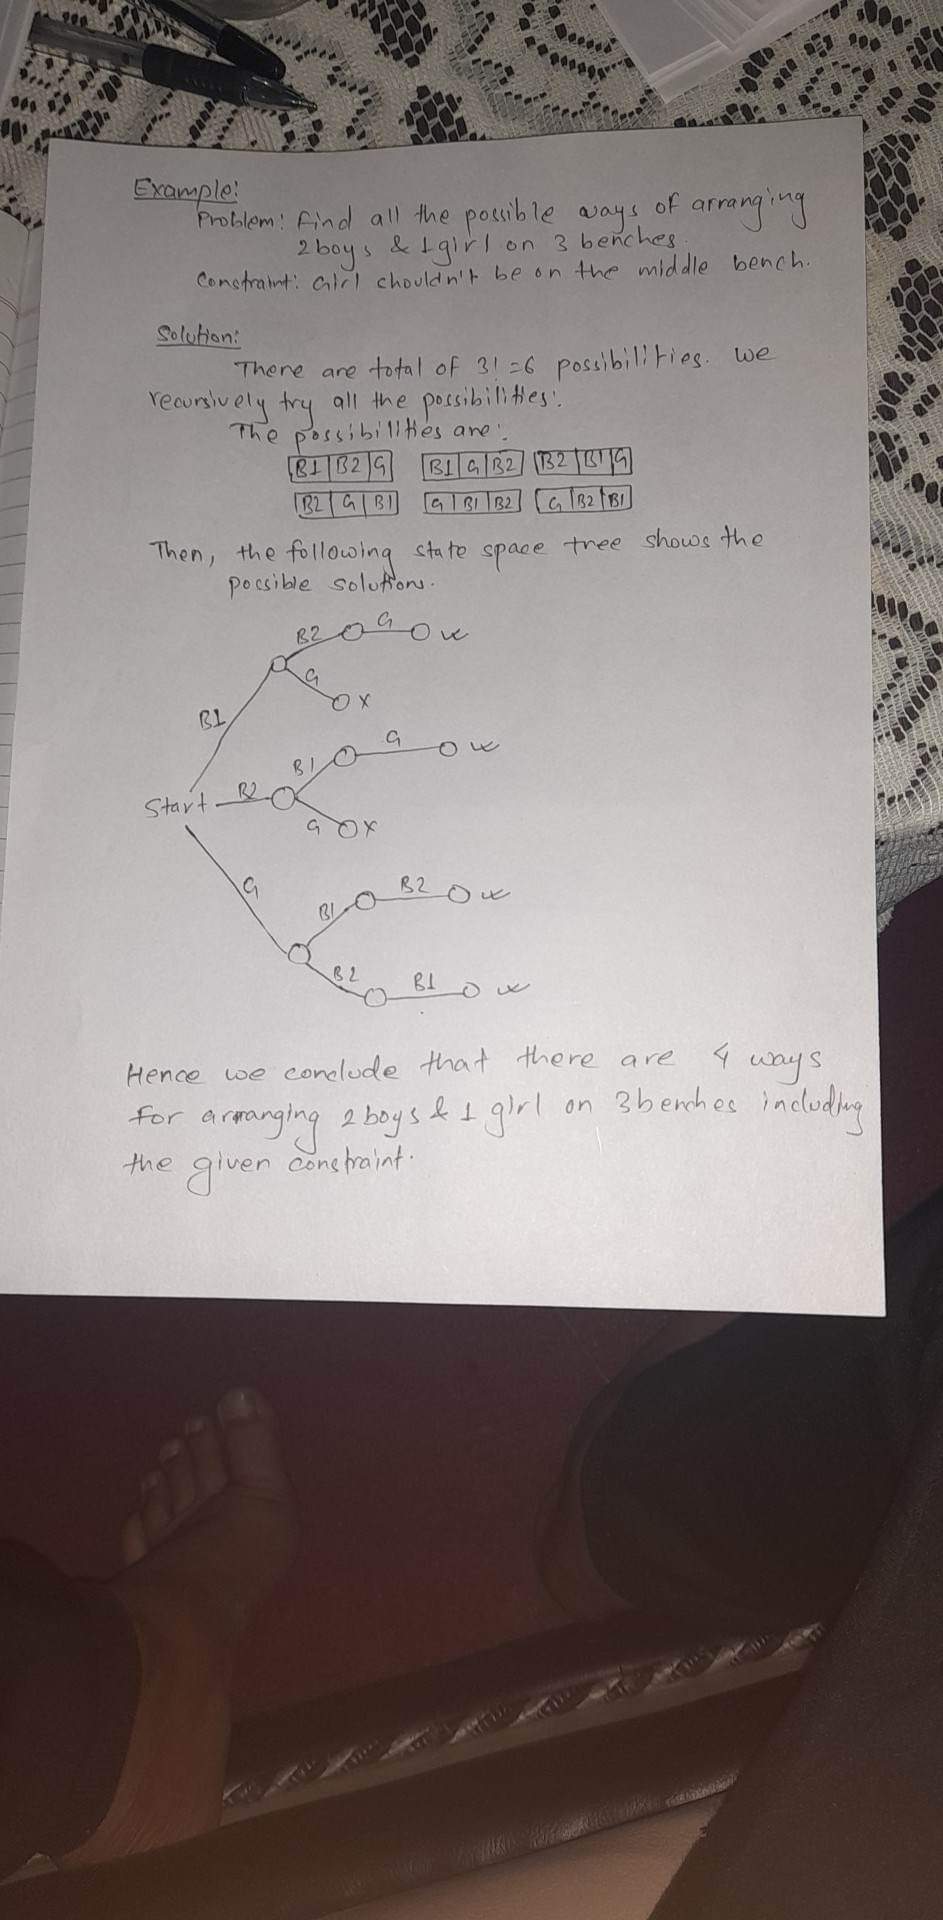 Example:
Problem: Find all the possible ways of arranging
2boys & 1girl on 3 benches.
Constraint: Girl chouldn't be on the middle bench.
Solution:
There are total of 3! = 6 possibilities. We
recursively try all the possibilities:
The possibilities are:
B1 B2 G B1 G B2 B2 B1 G
B2 G B1 G B1 B2 G B2 B1
Then, the following state space tree shows the
possible solutions.
B2 G
B1 G X
B1 G
Start B2
G X
G
B1 B2
B2 B1
Hence we conclude that there are 4 ways
for arranging 2boys & 1 girl on 3benches including
the given constraint.